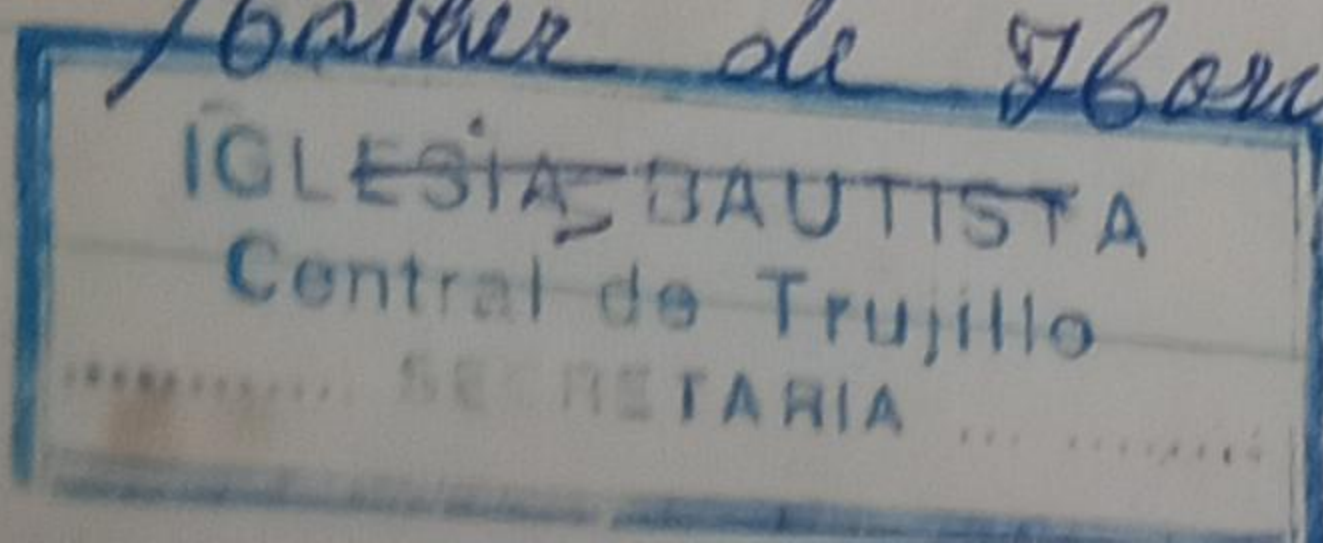 de
IGLESIA BAUTISTA
Central de Trujillo
SECRETARIA